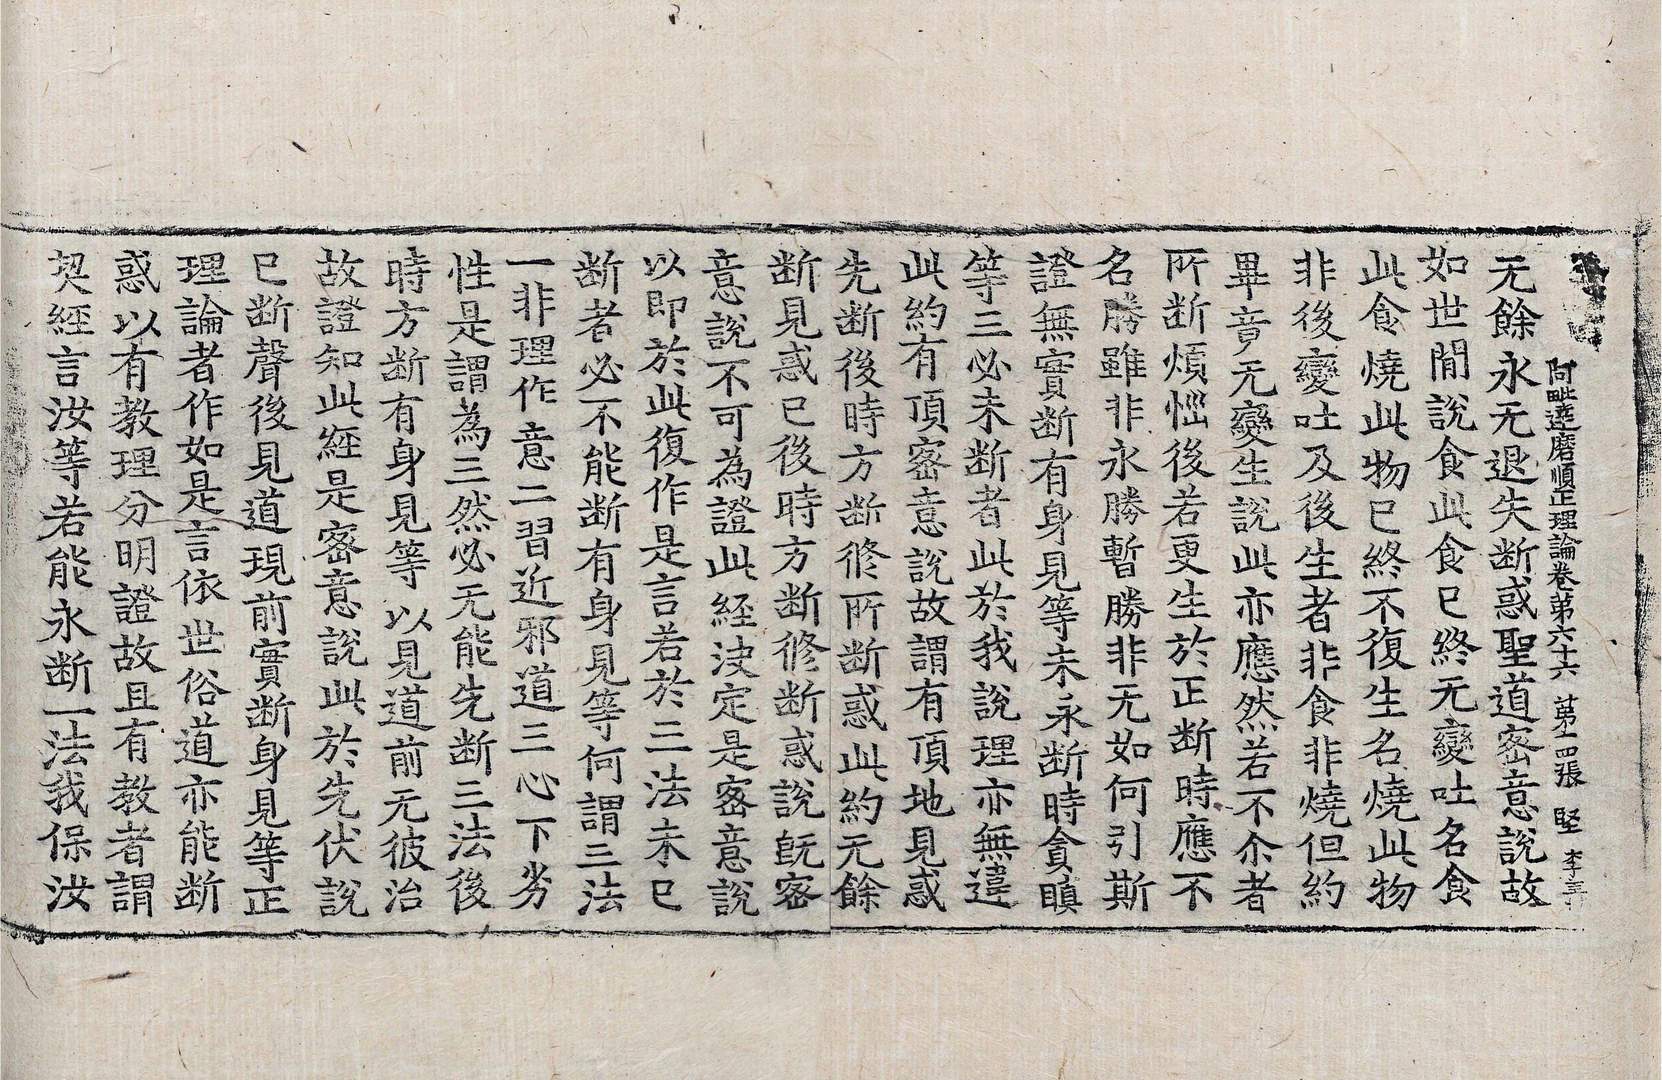 阿毗達磨順正理論卷第六十六 第十四張 堅 李
无餘永无退失断惑聖道密意說故
如世間說食此食已終无變吐名食
此食燒此物已終不復生名燒此物
非後變吐及後生者非食非燒但約
畢竟无變生說此亦應然若不尒者
所断煩惱後若更生於正断時應不
名勝雖非永勝暫勝非无如何引斯
證無實断有身見等未永断時貪瞋
等三必未断者此於我說理亦無違
此約有頂密意說故謂有頂地見惑
先断後時方断修所断惑此約无餘
断見惑已後時方断修断惑說旣密
意說不可為證此經決定是密意說
以即於此復作是言若於三法未已
断者必不能断有身見等何謂三法
一非理作意二習近邪道三心下劣
性是謂為三然必无能先断三法後
時方断有身見等以見道前无彼治
故證知此經是密意說此於先伏說
已断聲後見道現前實断身見等正
理論者作如是言依世俗道亦能断
惑以有教理分明證故且有教者謂
契經言汝等若能永断一法我保汝